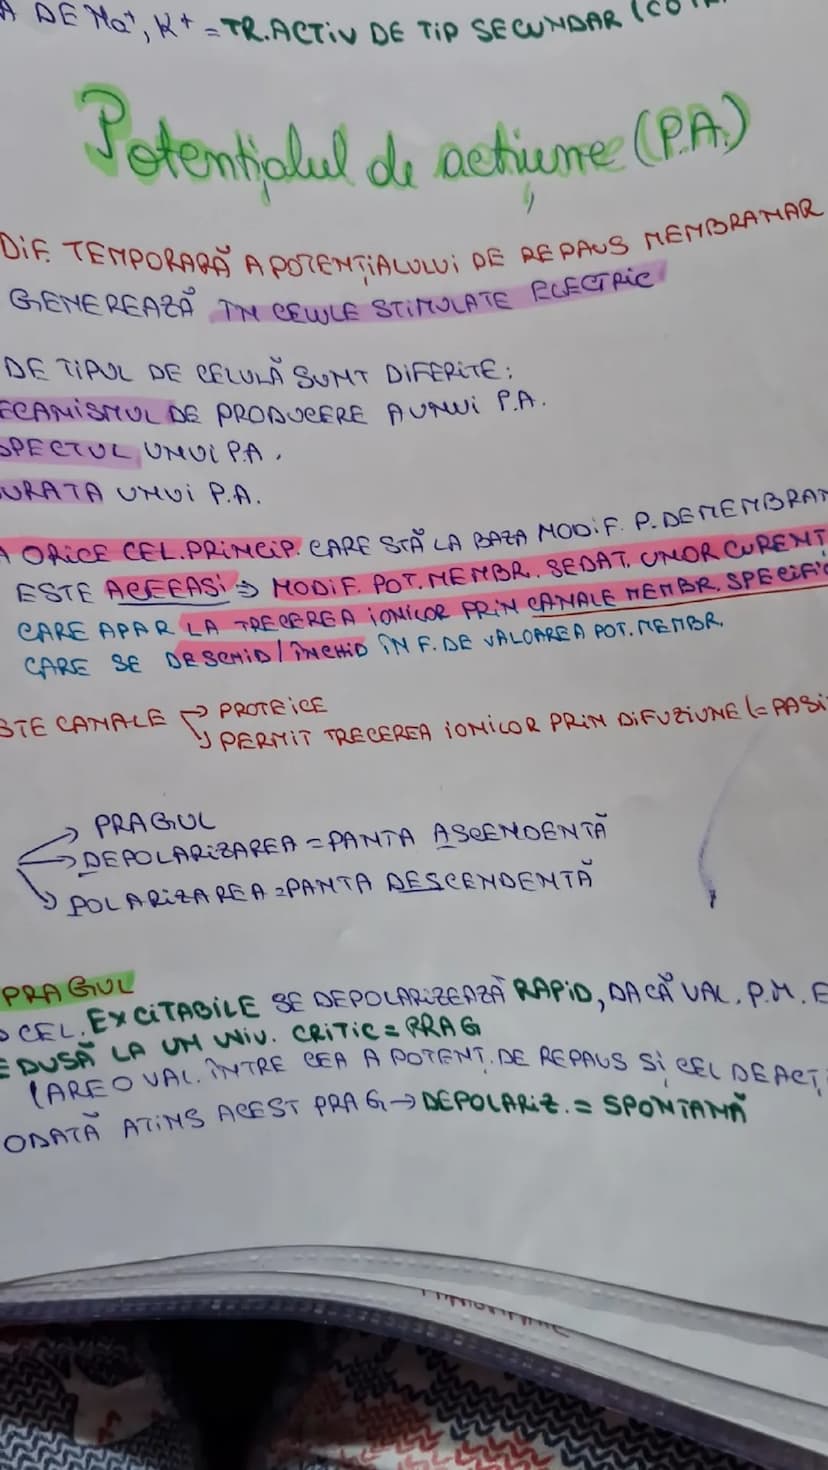 A DE Na⁺, K⁺ = TR. ACTIV DE TIP SECUNDAR (CO
Potențialul de acțiune (P.A.)
DIF. TEMPORARĂ A POTENȚIALULUI DE REPAUS MEMBRANAR
GENEREAZĂ ÎN CELULE STIMULATE ELECTRIC
DE TIPUL DE CELULĂ SUNT DIFERITE:
ECANISMUL DE PRODUCERE A UNUI P.A.
SPECTUL UNUI P.A.
URATA UNUI P.A.
A ORICE CEL. PRINCIP. CARE STĂ LA BAZA MODIF. P. DE MEMBRAN
ESTE ACEEAȘI => MODIF. POT. MEMBR. SE DAT. UNOR CURENT
CARE APAR LA TRECEREA IONILOR PRIN CANALE MEMBR. SPECIFIC
CARE SE DESCHID/ÎNCHID ÎN F. DE VALOAREA POT. MEMBR.
STE CANALE → PROTEICE
↘ PERMIT TRECEREA IONILOR PRIN DIFUZIUNE (= PASI
→ PRAGUL
→ DEPOLARIZAREA = PANTA ASCENDENTĂ
↘ POLARIZAREA = PANTA DESCENDENTĂ
PRAGUL
CEL. EXCITABILE SE DEPOLARIZEAZĂ RAPID, DACĂ VAL. P.M. E
EDUSĂ LA UN NIV. CRITIC = PRAG
(ARE O VAL. ÎNTRE CEA A POTENȚ. DE REPAUS ȘI CEL DE ACȚI
ODATĂ ATINS ACEST PRAG → DEPOLARIZ. = SPONTANĂ